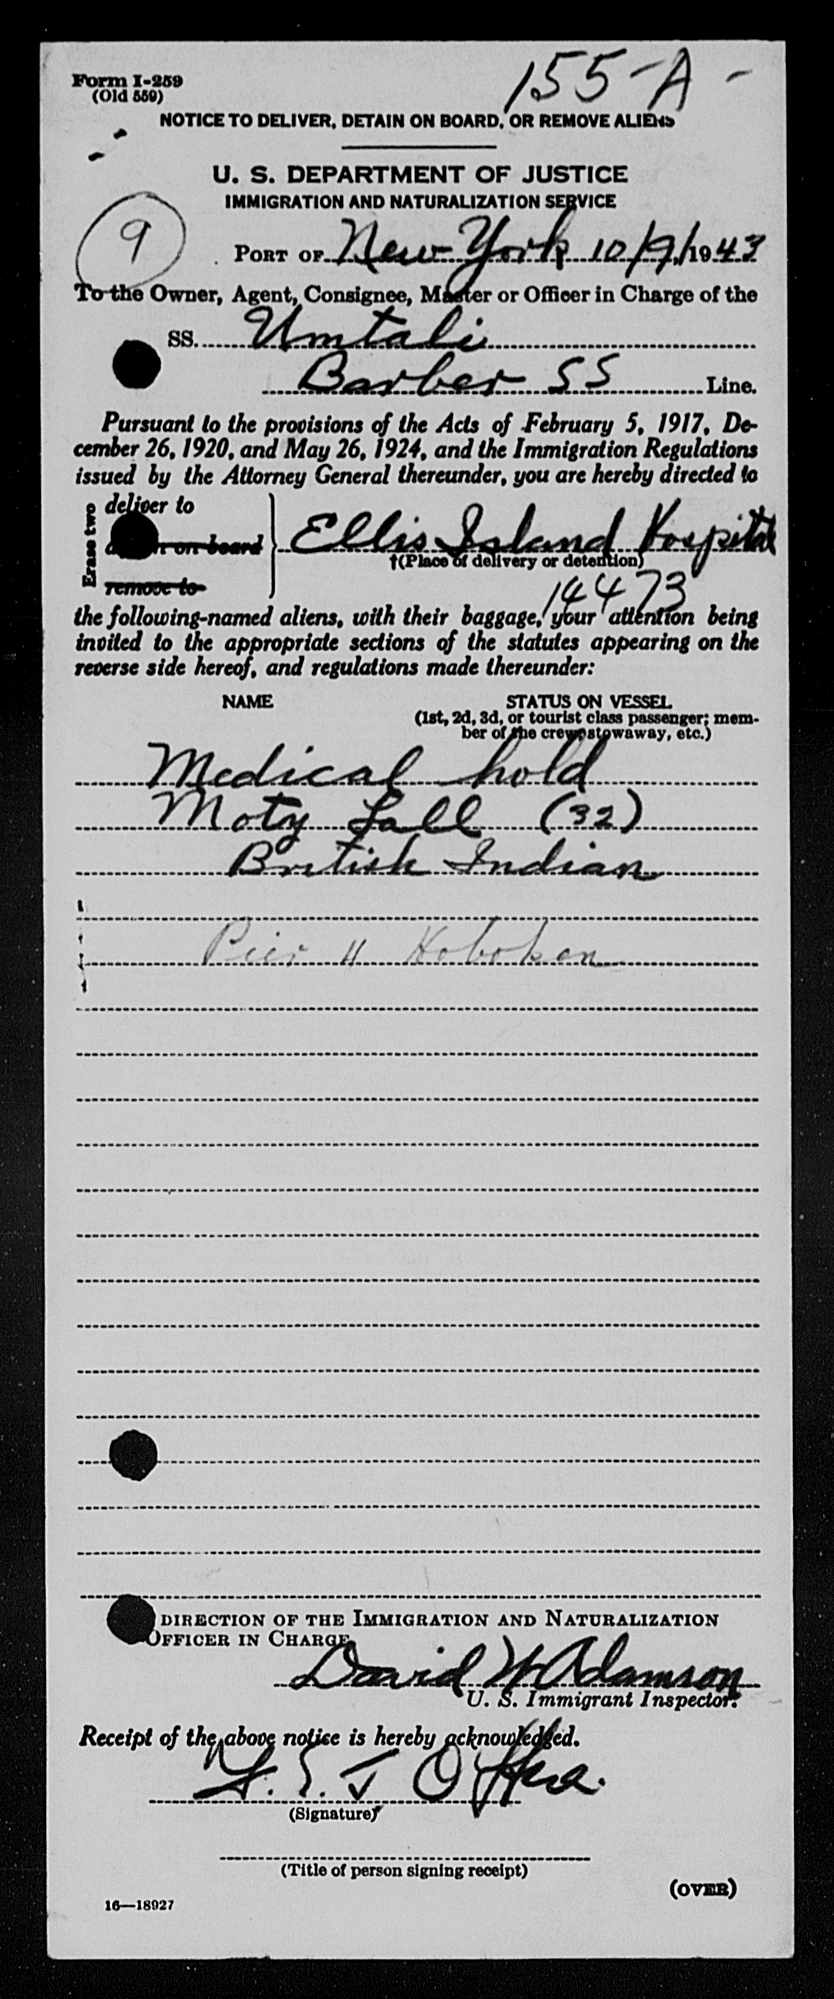 Form I-259
(Old 559)
155-A-
NOTICE TO DELIVER, DETAIN ON BOARD, OR REMOVE ALIENS
U. S. DEPARTMENT OF JUSTICE
IMMIGRATION AND NATURALIZATION SERVICE
9
PORT OF New York 10/9/1943
To the Owner, Agent, Consignee, Master or Officer in Charge of the
SS. Umtali
Barber SS Line.
Pursuant to the provisions of the Acts of February 5, 1917, De-
cember 26, 1920, and May 26, 1924, and the Immigration Regulations
issued by the Attorney General thereunder, you are hereby directed to
Erase two
deliver to
on board
remove to
Ellis Island Hospital
†(Place of delivery or detention)
14473
the following-named aliens, with their baggage, your attention being
invited to the appropriate sections of the statutes appearing on the
reverse side hereof, and regulations made thereunder:
NAME STATUS ON VESSEL
(1st, 2d, 3d, or tourist class passenger; mem-
ber of the crew, stowaway, etc.)
Medical hold
Moty Lall (32)
British Indian
Pier 11 Hoboken
DIRECTION OF THE IMMIGRATION AND NATURALIZATION
OFFICER IN CHARGE
David W Adamson
U. S. Immigrant Inspector.
Receipt of the above notice is hereby acknowledged.
(Signature)
(Title of person signing receipt)
(OVER)
16—18927